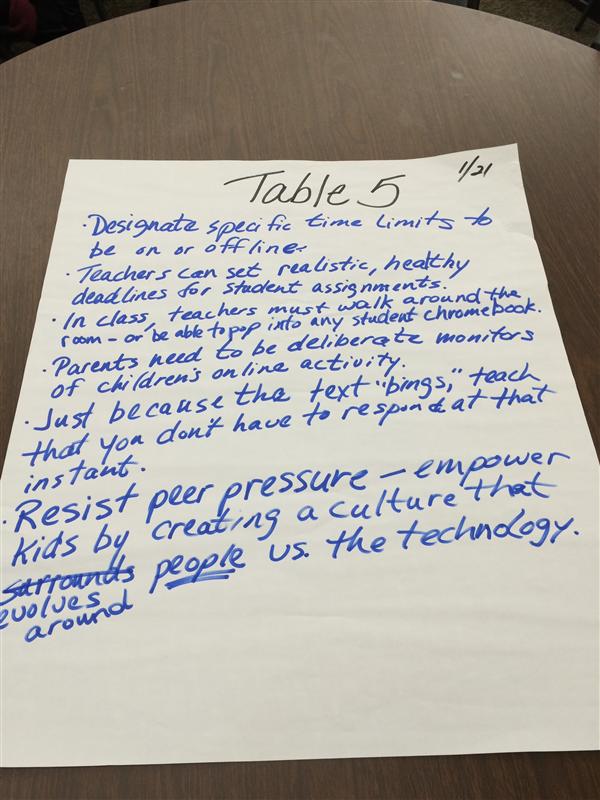 Table 5
1/21
· Designate specific time limits to
be on or offline.
· Teachers can set realistic, healthy
deadlines for student assignments.
· In class, teachers must walk around the
room - or be able to pop into any student chromebook.
· Parents need to be deliberate monitors
of children's online activity.
· Just because the text "bings," teach
that you don't have to respond at that
instant.
· Resist peer pressure - empower
kids by creating a culture that
surrounds people vs. the technology.
evolves
around